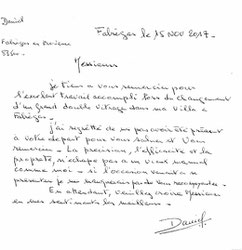 Daniel
Fabrègas le 15 NOV 2017.
Messieurs
Je tiens à vous remercier pour
l'excellent travail accompli lors du changement
d'un grand double vitrage dans ma Villa à
Fabrègas.
J'ai regretté de ne pas avoir été présent
à votre départ pour vous saluer et vous
remercier. La précision, l'efficacité et la
propreté, n'échappe pas à un vieux
comme moi. Si l'occasion venait à se
présenter je ne manquerais pas de vous recommander.
En attendant, veuillez croire Messieurs
en mes sentiments les meilleurs.
Daniel